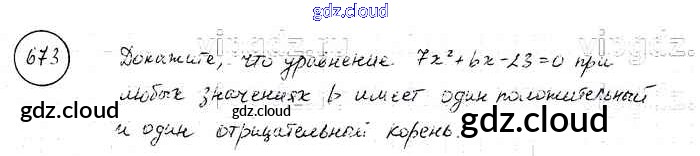 gdz.cloud
673 Докажите, что уравнение 7x²+bx-23=0 при
любых значениях b имеет один положительный
gdz.cloud gdz.cloud gdz.cloud
и один отрицательный корень.